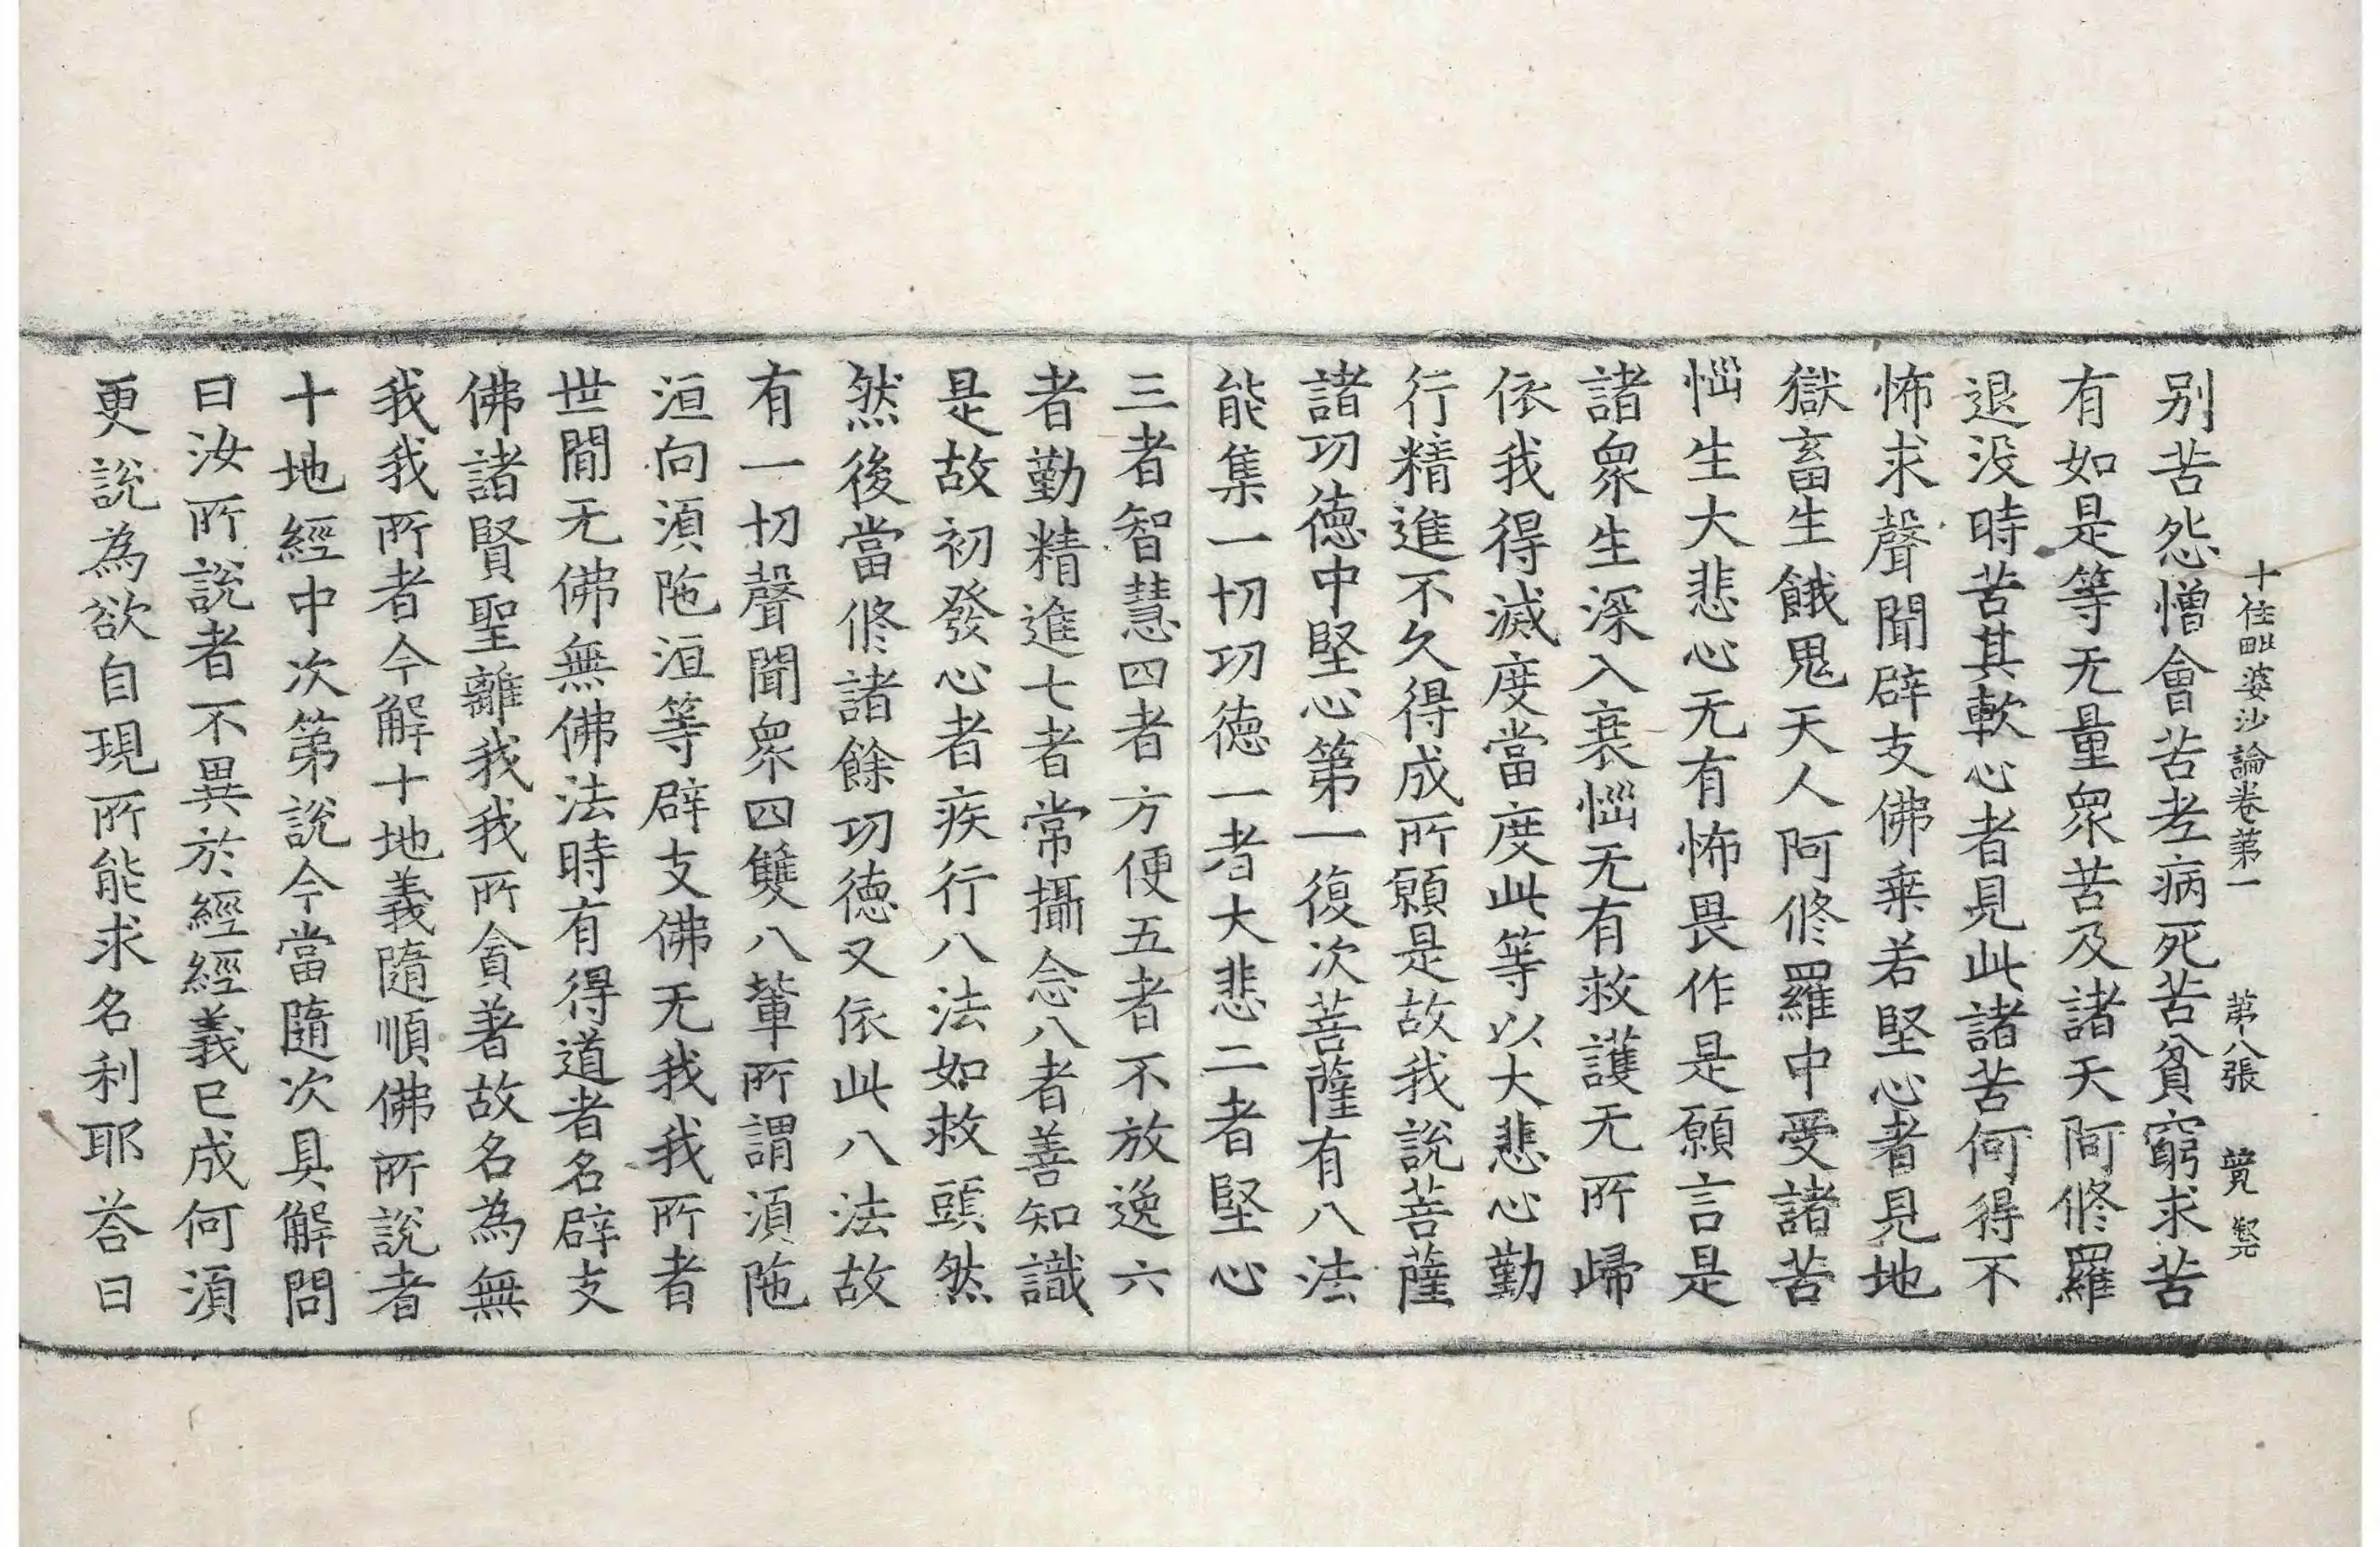 十住毗婆沙論卷第一　第八張　覺　㲉
别苦怨憎會苦老病死苦貧窮求苦
有如是等无量衆苦及諸天阿修羅
退没時苦其軟心者見此諸苦何得不
怖求聲聞辟支佛乗若堅心者見地
獄畜生餓鬼天人阿修羅中受諸苦
惱生大悲心无有怖畏作是願言是
諸衆生深入衰惱无有救護无所歸
依我得滅度當度此等以大悲心勤
行精進不久得成所願是故我說菩薩
諸功徳中堅心第一復次菩薩有八法
能集一切功徳一者大悲二者堅心
三者智慧四者方便五者不放逸六
者勤精進七者常攝念八者善知識
是故初發心者疾行八法如救頭然
然後當修諸餘功徳又依此八法故
有一切聲聞衆四雙八輩所謂湏陁
洹向湏陁洹等辟支佛无我我所者
世閒无佛無佛法時有得道者名辟支
佛諸賢聖離我我所貪著故名為無
我我所者今解十地義隨順佛所說者
十地經中次第說今當隨次具解問
曰汝所說者不異於經經義已成何湏
更說為欲自現所能求名利耶荅曰